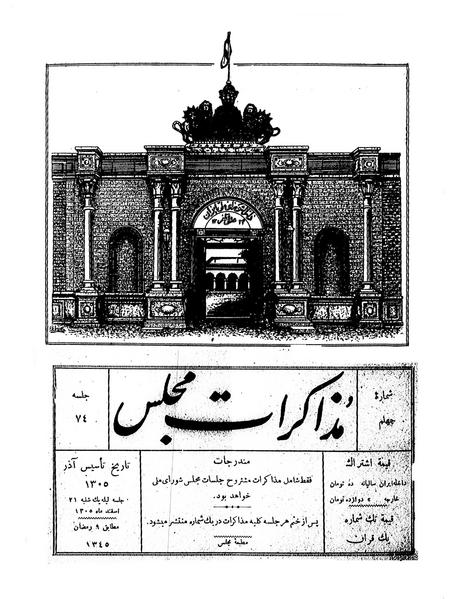 شماره
چهلم
مذاکرات مجلس
جلسه
۷۴
قیمة اشتراك
داخله ایران سالیانه ده تومان
خارجه » دوازده تومان
قیمة تك شماره
یك قران
مندرجات
فقط شامل مذاکرات مشروح جلسات مجلس شورای ملی
خواهد بود.
پس از ختم هر جلسه کلیه مذاکرات در یك شماره منتشر میشود.
مطبعه مجلس
تاریخ تأسیس آذر
۱۳۰۵
جلسه لیله یك شنبه ۲۱
اسفند ماه ۱۳۰۵
مطابق ۹ رمضان
۱۳۴۵